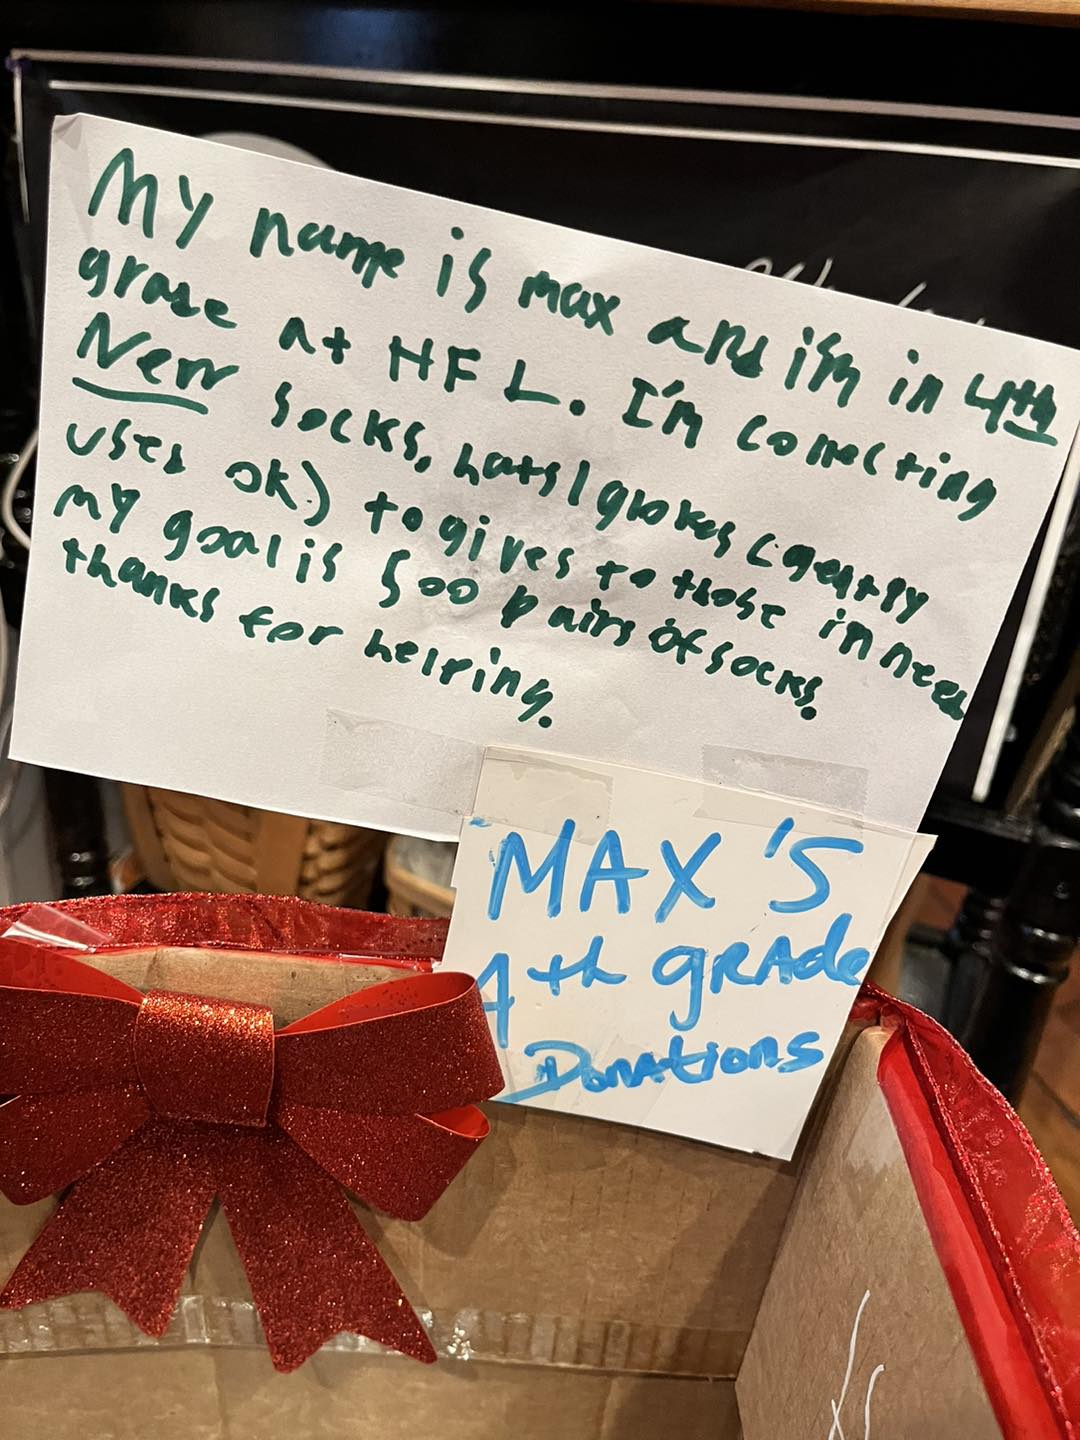 My name is max and i'm in 4th
grade at HFL. I'm collecting
New socks, hats/gloves (gently
used ok) to gives to those in need
my goal is 500 pairs of socks.
thanks for helping.
MAX'S
4th GRAde
Donations